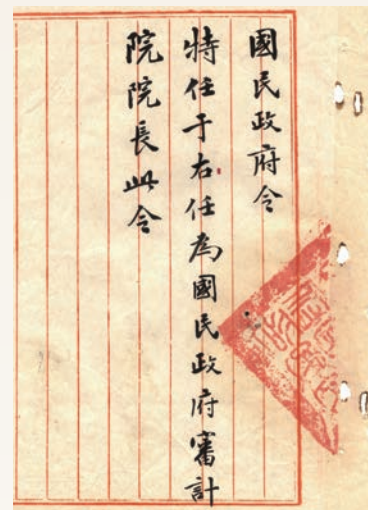 國民政府令
特任于右任為國民政府審計
院院長此令